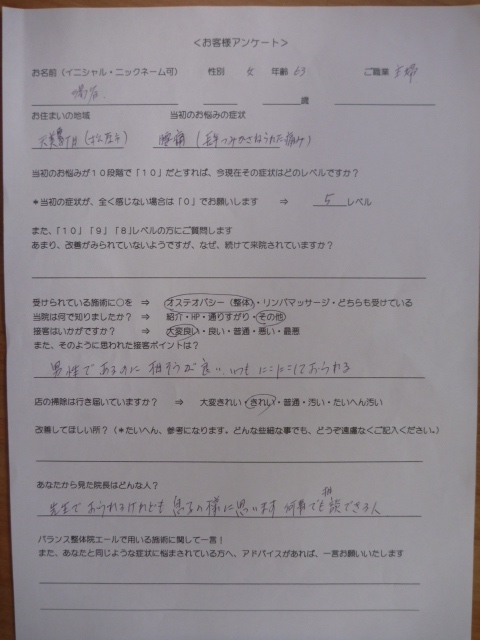 <お客様アンケート>
お名前（イニシャル・ニックネーム可） 性別 女 年齢 63 ご職業 主婦
歳
お住まいの地域 当初のお悩みの症状
腰痛（長年つみかさねられた痛み）
当初のお悩みが10段階で「10」だとすれば、今現在その症状はどのレベルですか？
＊当初の症状が、全く感じない場合は「0」でお願いします ⇒ 5 レベル
また、「10」「9」「8」レベルの方にご質問します
あまり、改善がみられていないようですが、なぜ、続けて来院されていますか？
受けられている施術に○を ⇒ オステオパシー（整体）・リンパマッサージ・どちらも受けている
当院は何で知りましたか？ ⇒ 紹介・HP・通りすがり・その他
接客はいかがですか？ ⇒ 大変良い・良い・普通・悪い・最悪
また、そのように思われた接客ポイントは？
男性であるのに 相そうが良い いつも にこにこしておられる
店の掃除は行き届いていますか？ ⇒ 大変きれい・きれい・普通・汚い・たいへん汚い
改善してほしい所？（＊たいへん、参考になります。どんな些細な事でも、どうぞ遠慮なくご記入ください。）
あなたから見た院長はどんな人？
先生でおられるけれども 息子の様に思います 何事でも 相談できる人
バランス整体院エールで用いる施術に関して一言！
また、あなたと同じような症状に悩まされている方へ、アドバイスがあれば、一言お願いいたします